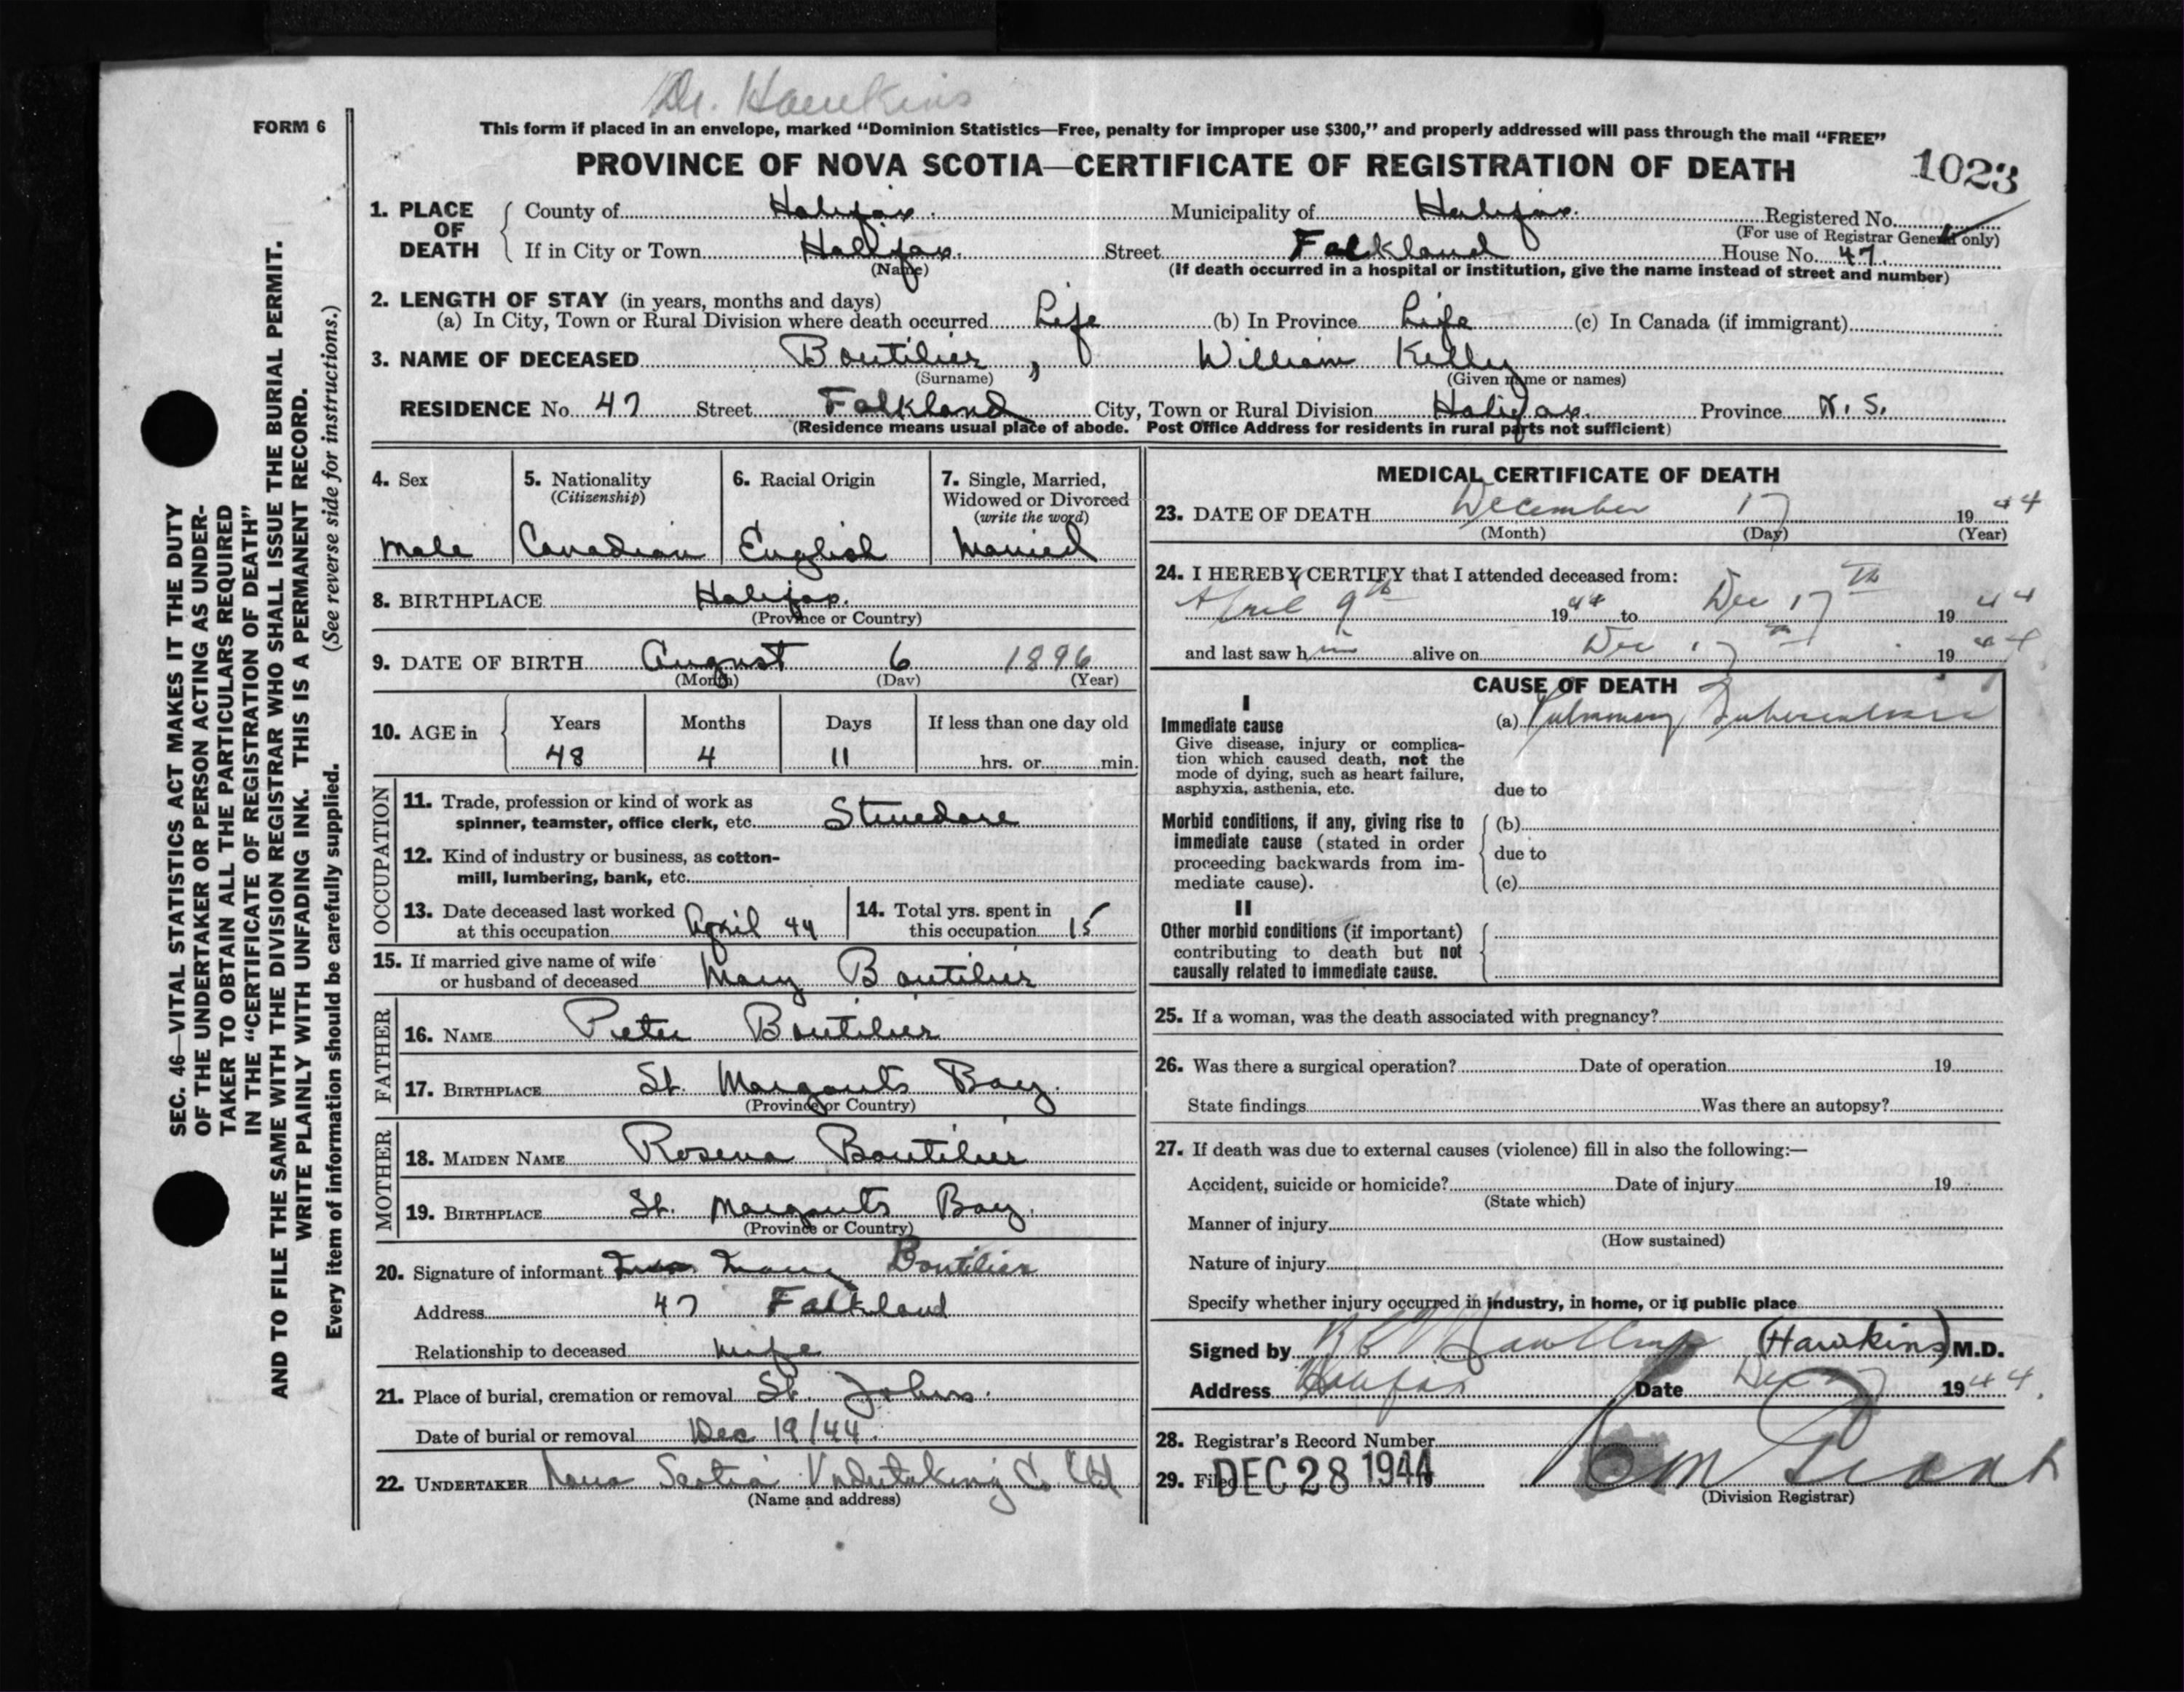 Dr. Hawkins
FORM 6
This form if placed in an envelope, marked “Dominion Statistics—Free, penalty for improper use $300,” and properly addressed will pass through the mail “FREE”
PROVINCE OF NOVA SCOTIA—CERTIFICATE OF REGISTRATION OF DEATH
1023
1. PLACE OF DEATH
County of Halifax. Municipality of Halifax. Registered No.
(For use of Registrar General only)
If in City or Town Halifax. Street Falkland House No. 47.
(Name) (If death occurred in a hospital or institution, give the name instead of street and number)
2. LENGTH OF STAY (in years, months and days)
(a) In City, Town or Rural Division where death occurred Life (b) In Province Life (c) In Canada (if immigrant)
3. NAME OF DECEASED Boutilier, William Kelly
(Surname) (Given name or names)
RESIDENCE No. 47 Street Falkland City, Town or Rural Division Halifax. Province N. S.
(Residence means usual place of abode. Post Office Address for residents in rural parts not sufficient)
4. Sex
male
5. Nationality
(Citizenship)
Canadian
6. Racial Origin
English
7. Single, Married,
Widowed or Divorced
(write the word)
Married
8. BIRTHPLACE Halifax.
(Province or Country)
9. DATE OF BIRTH August 6 1896
(Month) (Day) (Year)
10. AGE in
Years Months Days If less than one day old
48 4 11 hrs. or min.
OCCUPATION
11. Trade, profession or kind of work as
spinner, teamster, office clerk, etc. Stuedore
12. Kind of industry or business, as cotton-
mill, lumbering, bank, etc.
13. Date deceased last worked
at this occupation April 44
14. Total yrs. spent in
this occupation 15
15. If married give name of wife
or husband of deceased Mary Boutilier
FATHER
16. NAME Peter Boutilier
17. BIRTHPLACE St. Margarets Bay.
(Province or Country)
MOTHER
18. MAIDEN NAME Rosena Boutilier
19. BIRTHPLACE St. Margarets Bay.
(Province or Country)
20. Signature of informant Mary Boutilier
Address 47 Falkland
Relationship to deceased wife
21. Place of burial, cremation or removal St. Johns.
Date of burial or removal Dec 19/44.
22. UNDERTAKER Nova Scotia Undertaking Co Ltd
(Name and address)
MEDICAL CERTIFICATE OF DEATH
23. DATE OF DEATH December 17 1944
(Month) (Day) (Year)
24. I HEREBY CERTIFY that I attended deceased from:
April 9th 1944 to Dec 17th 1944
and last saw him alive on Dec 17th 1944
CAUSE OF DEATH
I
Immediate cause
Give disease, injury or complica-
tion which caused death, not the
mode of dying, such as heart failure,
asphyxia, asthenia, etc.
(a) Pulmonary Tuberculosis
due to
Morbid conditions, if any, giving rise to
immediate cause (stated in order
proceeding backwards from im-
mediate cause).
(b)
due to
(c)
II
Other morbid conditions (if important)
contributing to death but not
causally related to immediate cause.
25. If a woman, was the death associated with pregnancy?
26. Was there a surgical operation? Date of operation 19
State findings Was there an autopsy?
27. If death was due to external causes (violence) fill in also the following:—
Accident, suicide or homicide? Date of injury 19
(State which)
Manner of injury
(How sustained)
Nature of injury
Specify whether injury occurred in industry, in home, or in public place
Signed by Hawkins (Hawkins) M.D.
Address Halifax Date Dec 1944.
28. Registrar's Record Number
29. Filed DEC 28 1944
(Division Registrar)
SEC. 46—VITAL STATISTICS ACT MAKES IT THE DUTY
OF THE UNDERTAKER OR PERSON ACTING AS UNDER-
TAKER TO OBTAIN ALL THE PARTICULARS REQUIRED
IN THE “CERTIFICATE OF REGISTRATION OF DEATH”
AND TO FILE THE SAME WITH THE DIVISION REGISTRAR WHO SHALL ISSUE THE BURIAL PERMIT.
WRITE PLAINLY WITH UNFADING INK. THIS IS A PERMANENT RECORD.
Every item of information should be carefully supplied. (See reverse side for instructions.)